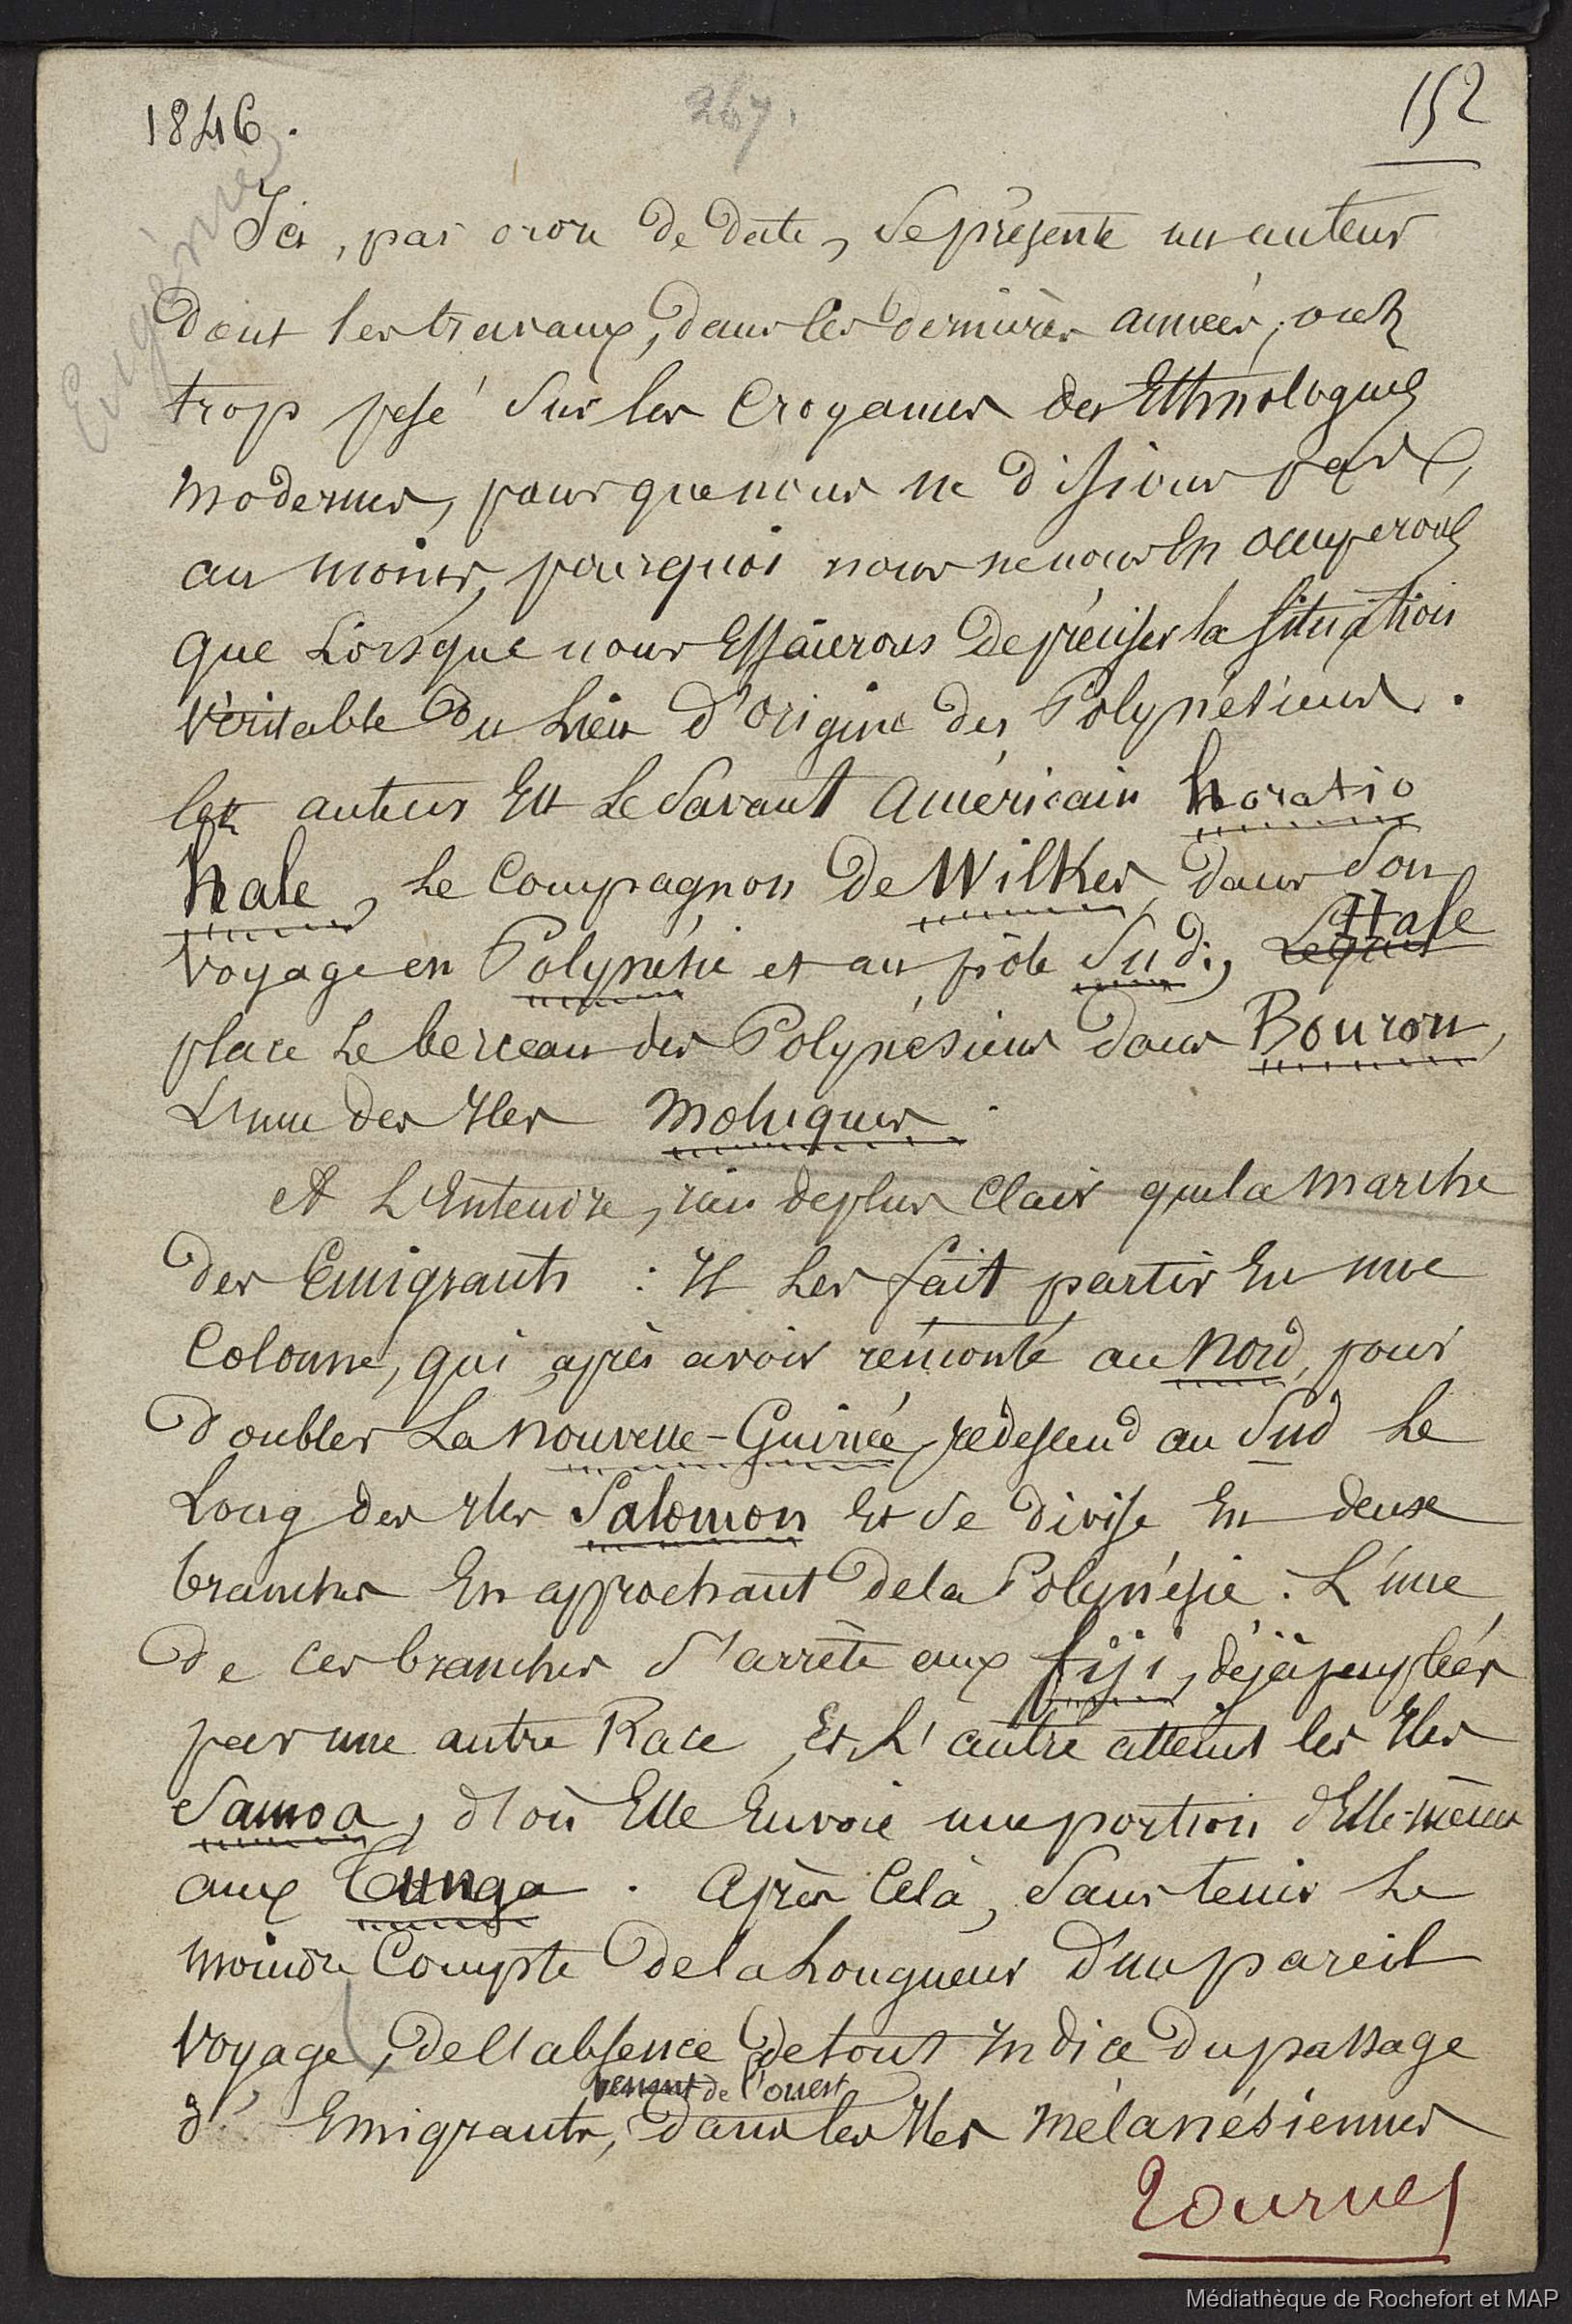 1846.
267.
152
Eugénie
Ici, par ordre de date, se présente un auteur
dont les travaux, dans les dernières années, ont
trop pesé sur les croyances des Ethnologues
modernes, pour que nous ne disions pas,
au moins, pourquoi nous ne nous en occuperons
que Lorsque nous Essaierons de préciser la situation
véritable du Lieu d'origine des Polynésiens.
Cet auteur Est Le Savant américain horatio
hale, Le Compagnon de Wilkes, dans son
voyage en Polynésie et au pôle Sud; Lequel Hale
place Le berceau des Polynésiens dans Bouron,
L'une des Iles moluques.
A L'Entendre, rien de plus clair que la marche
des Emigrants : Il Les fait partir En une
Colonne, qui après avoir rémonté au nord, pour
doubler La nouvelle-Guinée, redescend au Sud Le
Long des Iles Salomon Et se divise En deux
branches En approchant de la Polynésie. L'une
de ces branches s'arrête aux fiji, déjà peuplées
par une autre Race, Et L'autre atteint les Iles
Samoa, d'où Elle Envoie une portion d'Elle-même
aux Tunga. Après Celà, Sans tenir Le
moindre Compte de la Longueur d'un pareil
voyage, de l'absence de tout Indice du passage
venant de l'ouest
d' Emigrants, dans les Iles mélanésiennes
Tournez
Médiathèque de Rochefort et MAP